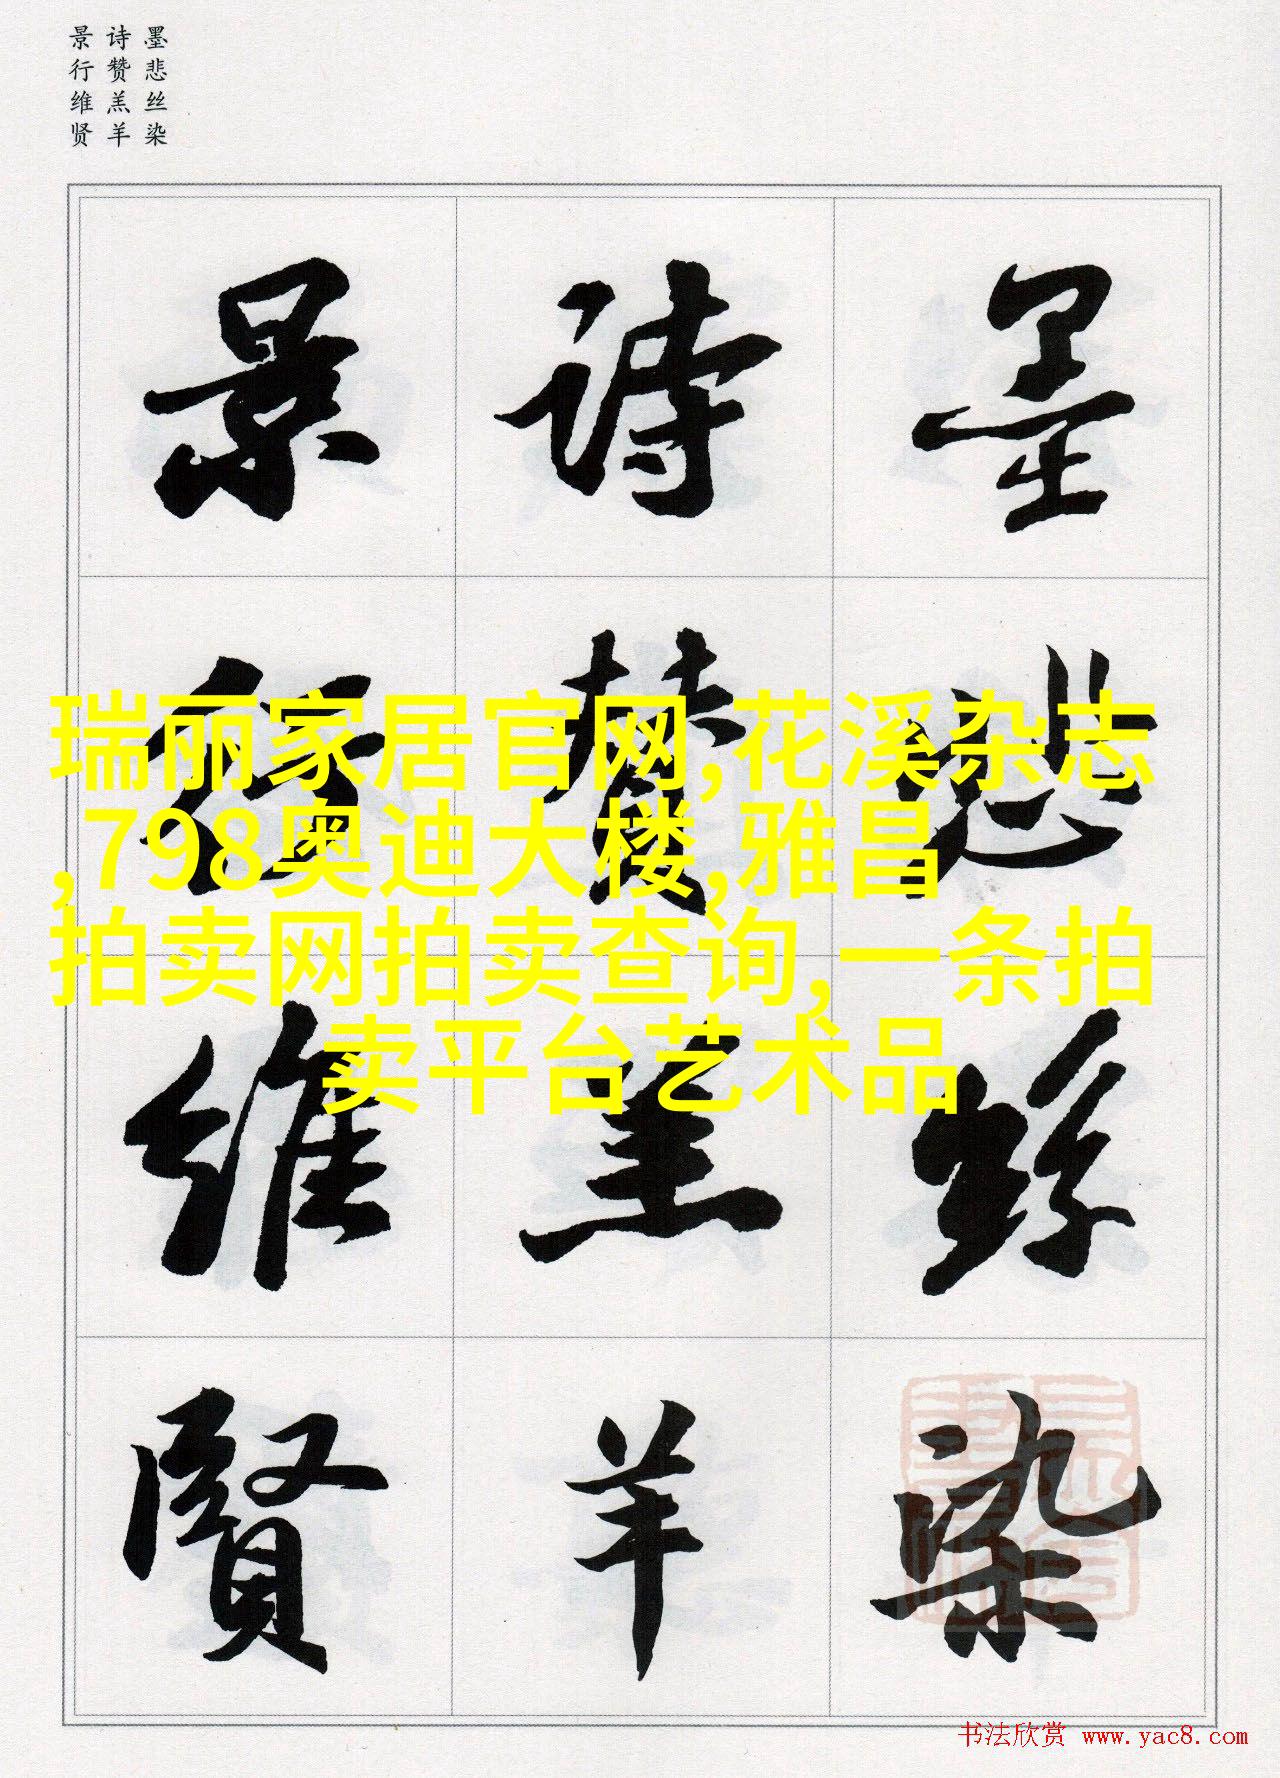 墨悲丝染
诗赞羔羊
景行维贤
墨悲絲染
詩贊羔羊
景行維賢
瑞丽家居官网,花溪杂志
,798奥迪大楼,雅昌
拍卖网拍卖查询,一条拍
卖平台艺术品
书法欣赏 www.yac8.com